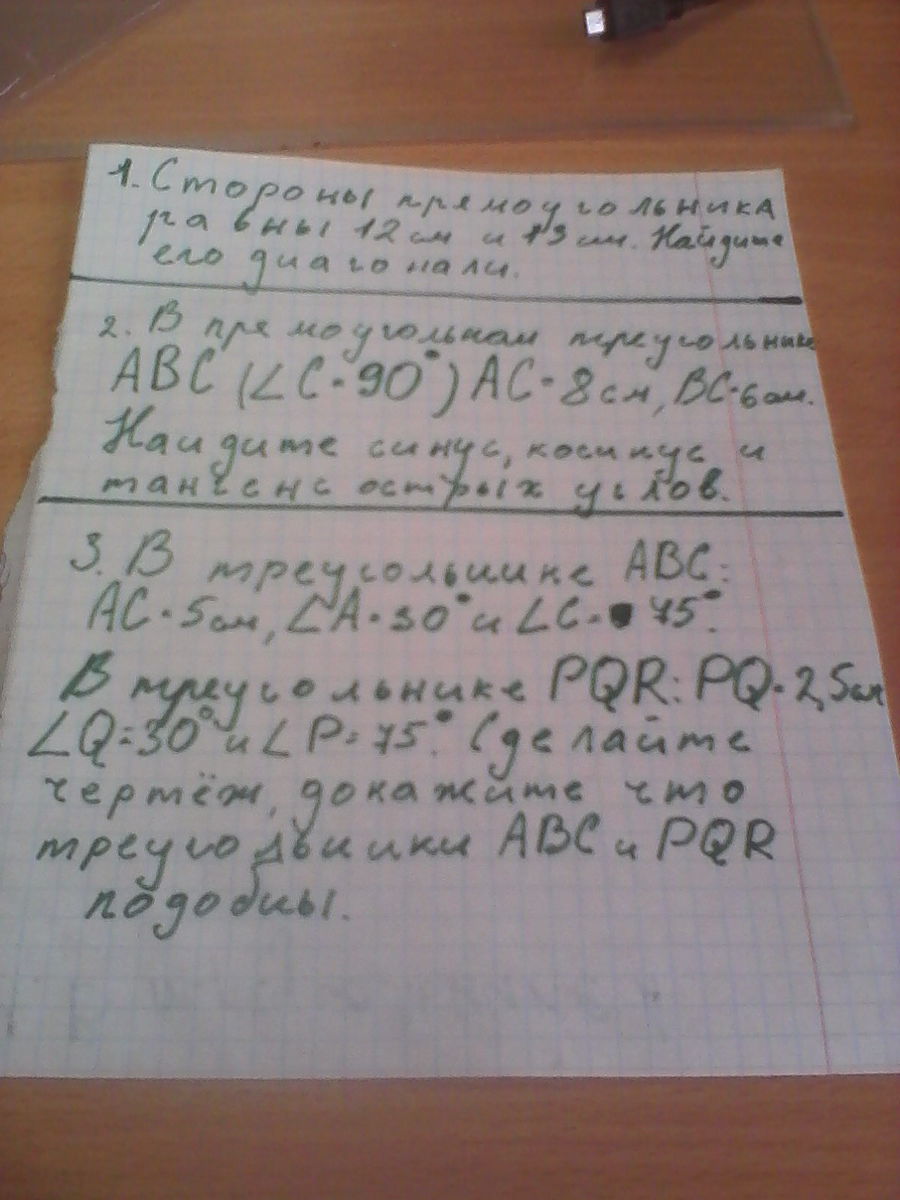 1. Стороны прямоугольника
равны 12см и 13см. Найдите
его диагонали.
2. В прямоугольном треугольнике
ABC (∠C=90°) AC=8см, BC=6см.
Найдите синус, косинус и
тангенс острых углов.
3. В треугольнике ABC:
AC=5см, ∠A=30° и ∠C=75°.
В треугольнике PQR: PQ=2,5см
∠Q=30° и ∠P=75°. Сделайте
чертёж, докажите что
треугольники ABC и PQR
подобны.